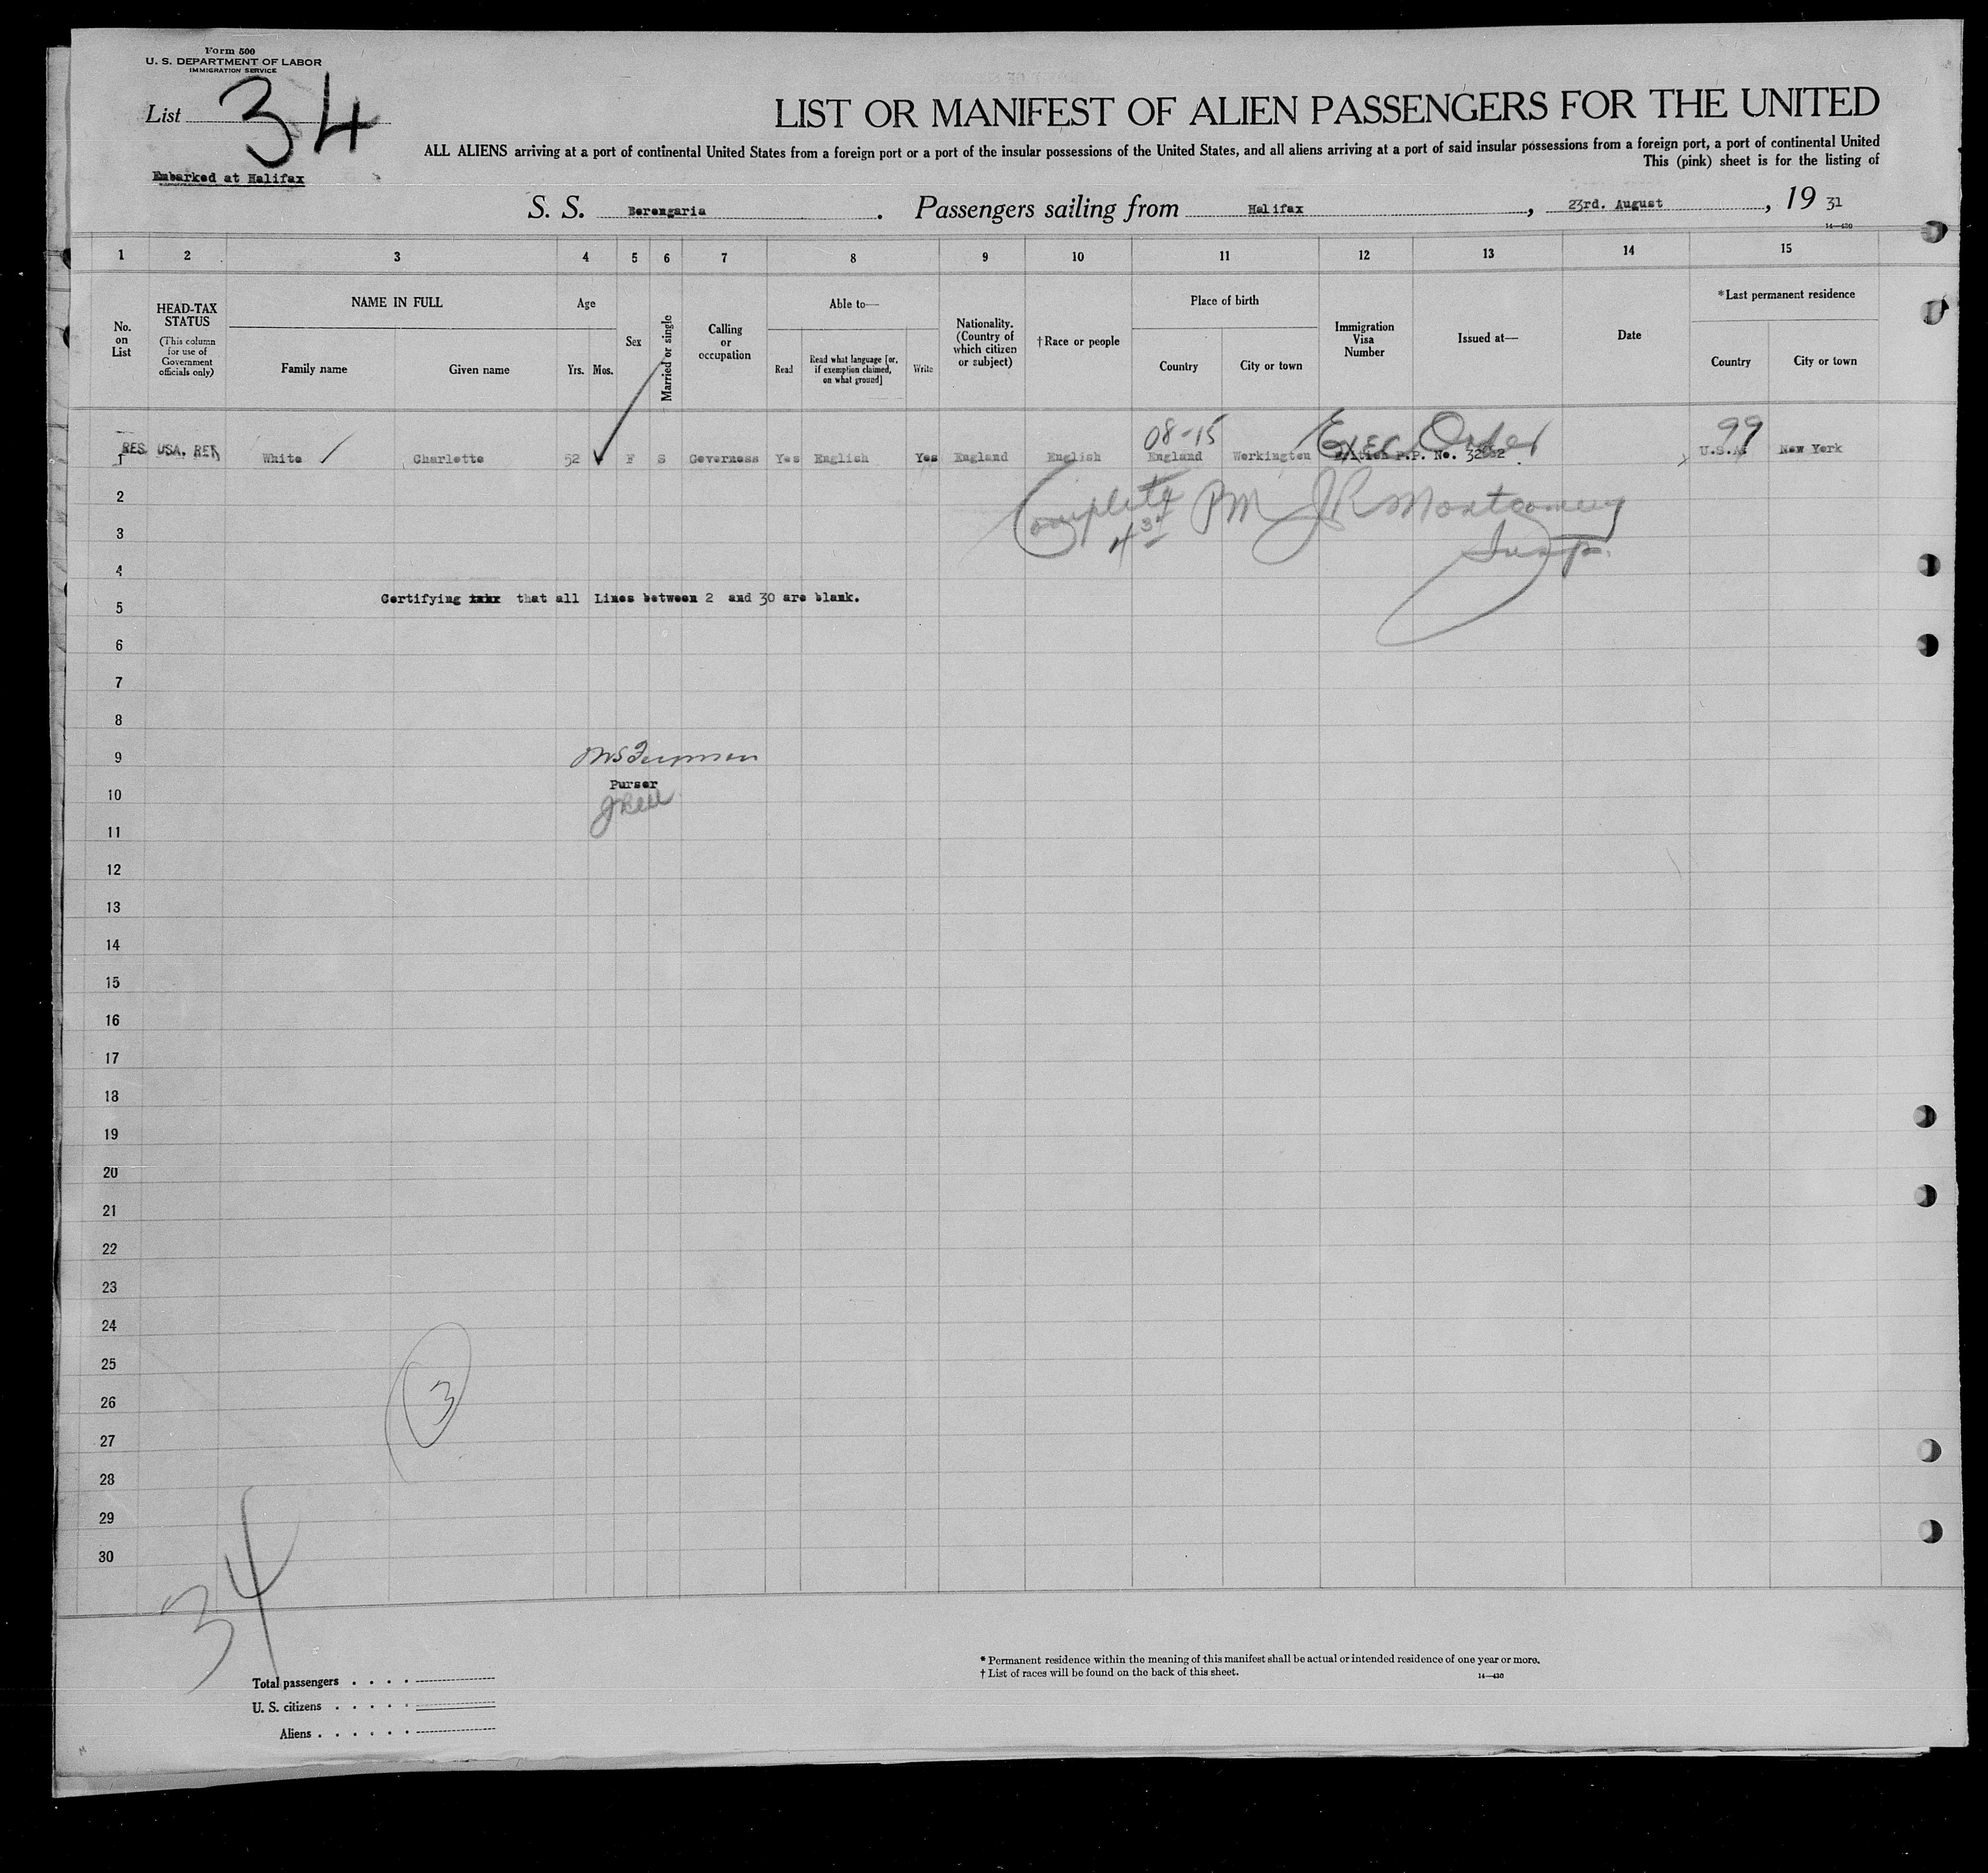 Form 500
U. S. DEPARTMENT OF LABOR
IMMIGRATION SERVICE
List 34
Embarked at Halifax
LIST OR MANIFEST OF ALIEN PASSENGERS FOR THE UNITED
ALL ALIENS arriving at a port of continental United States from a foreign port or a port of the insular possessions of the United States, and all aliens arriving at a port of said insular possessions from a foreign port, a port of continental United
This (pink) sheet is for the listing of
S. S. Berengaria . Passengers sailing from Halifax , 23rd. August , 19 31
14—430
1 2 3 4 5 6 7 8 9 10 11 12 13 14 15
No. on List
HEAD-TAX STATUS
(This column for use of Government officials only)
NAME IN FULL
Family name
Given name
Age
Yrs. Mos.
Sex
Married or single
Calling or occupation
Able to—
Read
Read what language [or, if exemption claimed, on what ground]
Write
Nationality. (Country of which citizen or subject)
†Race or people
Place of birth
Country
City or town
Immigration Visa Number
Issued at—
Date
*Last permanent residence
Country
City or town
08-15 Exec Order 99
1 RES USA. RET White Charlotte 52 F S Governess Yes English Yes England English England Workington British P.P. No. U.S.A. New York
2
Complete PM JR Montgomery
3
4 3rd
Insp.
4
Certifying that all Lines between 2 and 30 are blank.
5
6
7
8
9
Purser
10
11
12
13
14
15
16
17
18
19
20
21
22
23
24
25
26
3
27
28
29
30
34
Total passengers
U. S. citizens
Aliens
* Permanent residence within the meaning of this manifest shall be actual or intended residence of one year or more.
† List of races will be found on the back of this sheet.
14—430